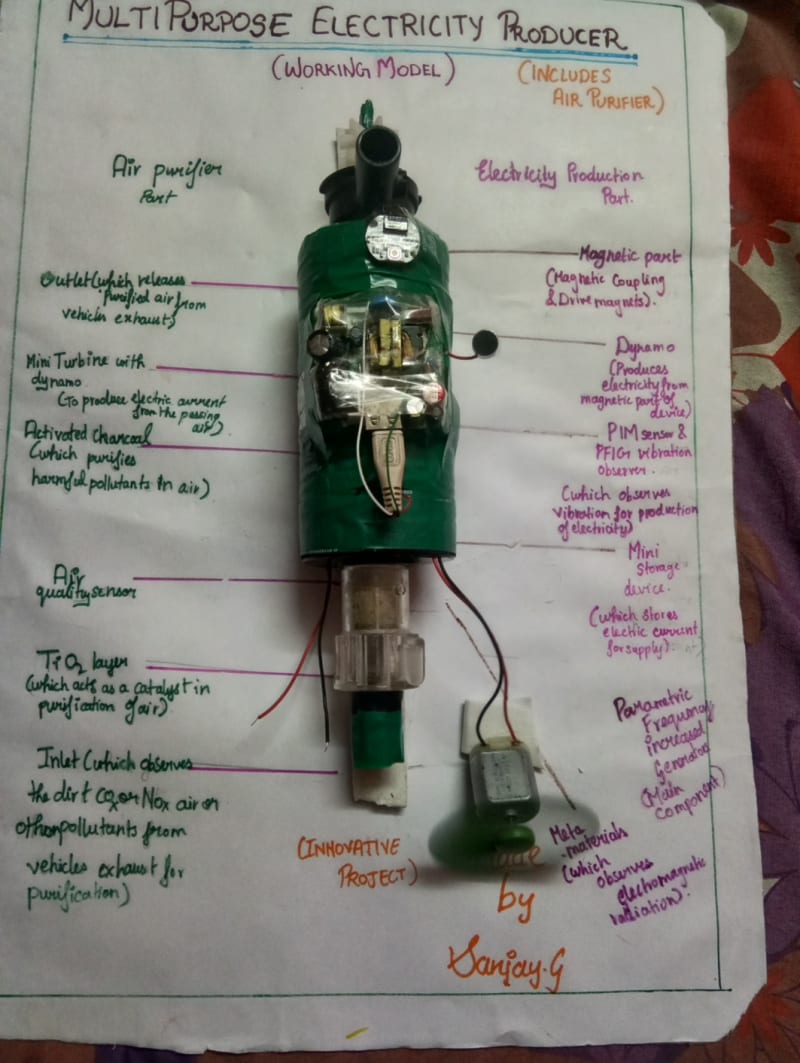 MULTIPURPOSE ELECTRICITY PRODUCER
(WORKING MODEL)
(INCLUDES
AIR PURIFIER)
Air purifier
Part
Outlet (which releases
purified air from
vehicles exhaust)
Mini Turbine with
dynamo
(To produce electric current
from the passing
air)
Activated charcoal
(which purifies
harmful pollutants in air)
Air
quality sensor
TiO2 layer
(which acts as a catalyst in
purification of air)
Inlet (which observes
the dirt CO2 or NOx air or
other pollutants from
vehicles exhaust for
purification)
Electricity Production
Part.
Magnetic part
(Magnetic Coupling
& Drive magnets).
Dynamo
(Produces
electricity from
magnetic part of
device)
PIM sensor &
PFIG vibration
observer.
(which observes
vibration for production
of electricity)
Mini
Storage
device.
(which stores
electric current
for supply).
Parametric
Frequency
increased
Generator
(Main
component)
Meta
materials
(which
observes
electromagnetic
radiation).
(INNOVATIVE
PROJECT)
by
Sanjay.G